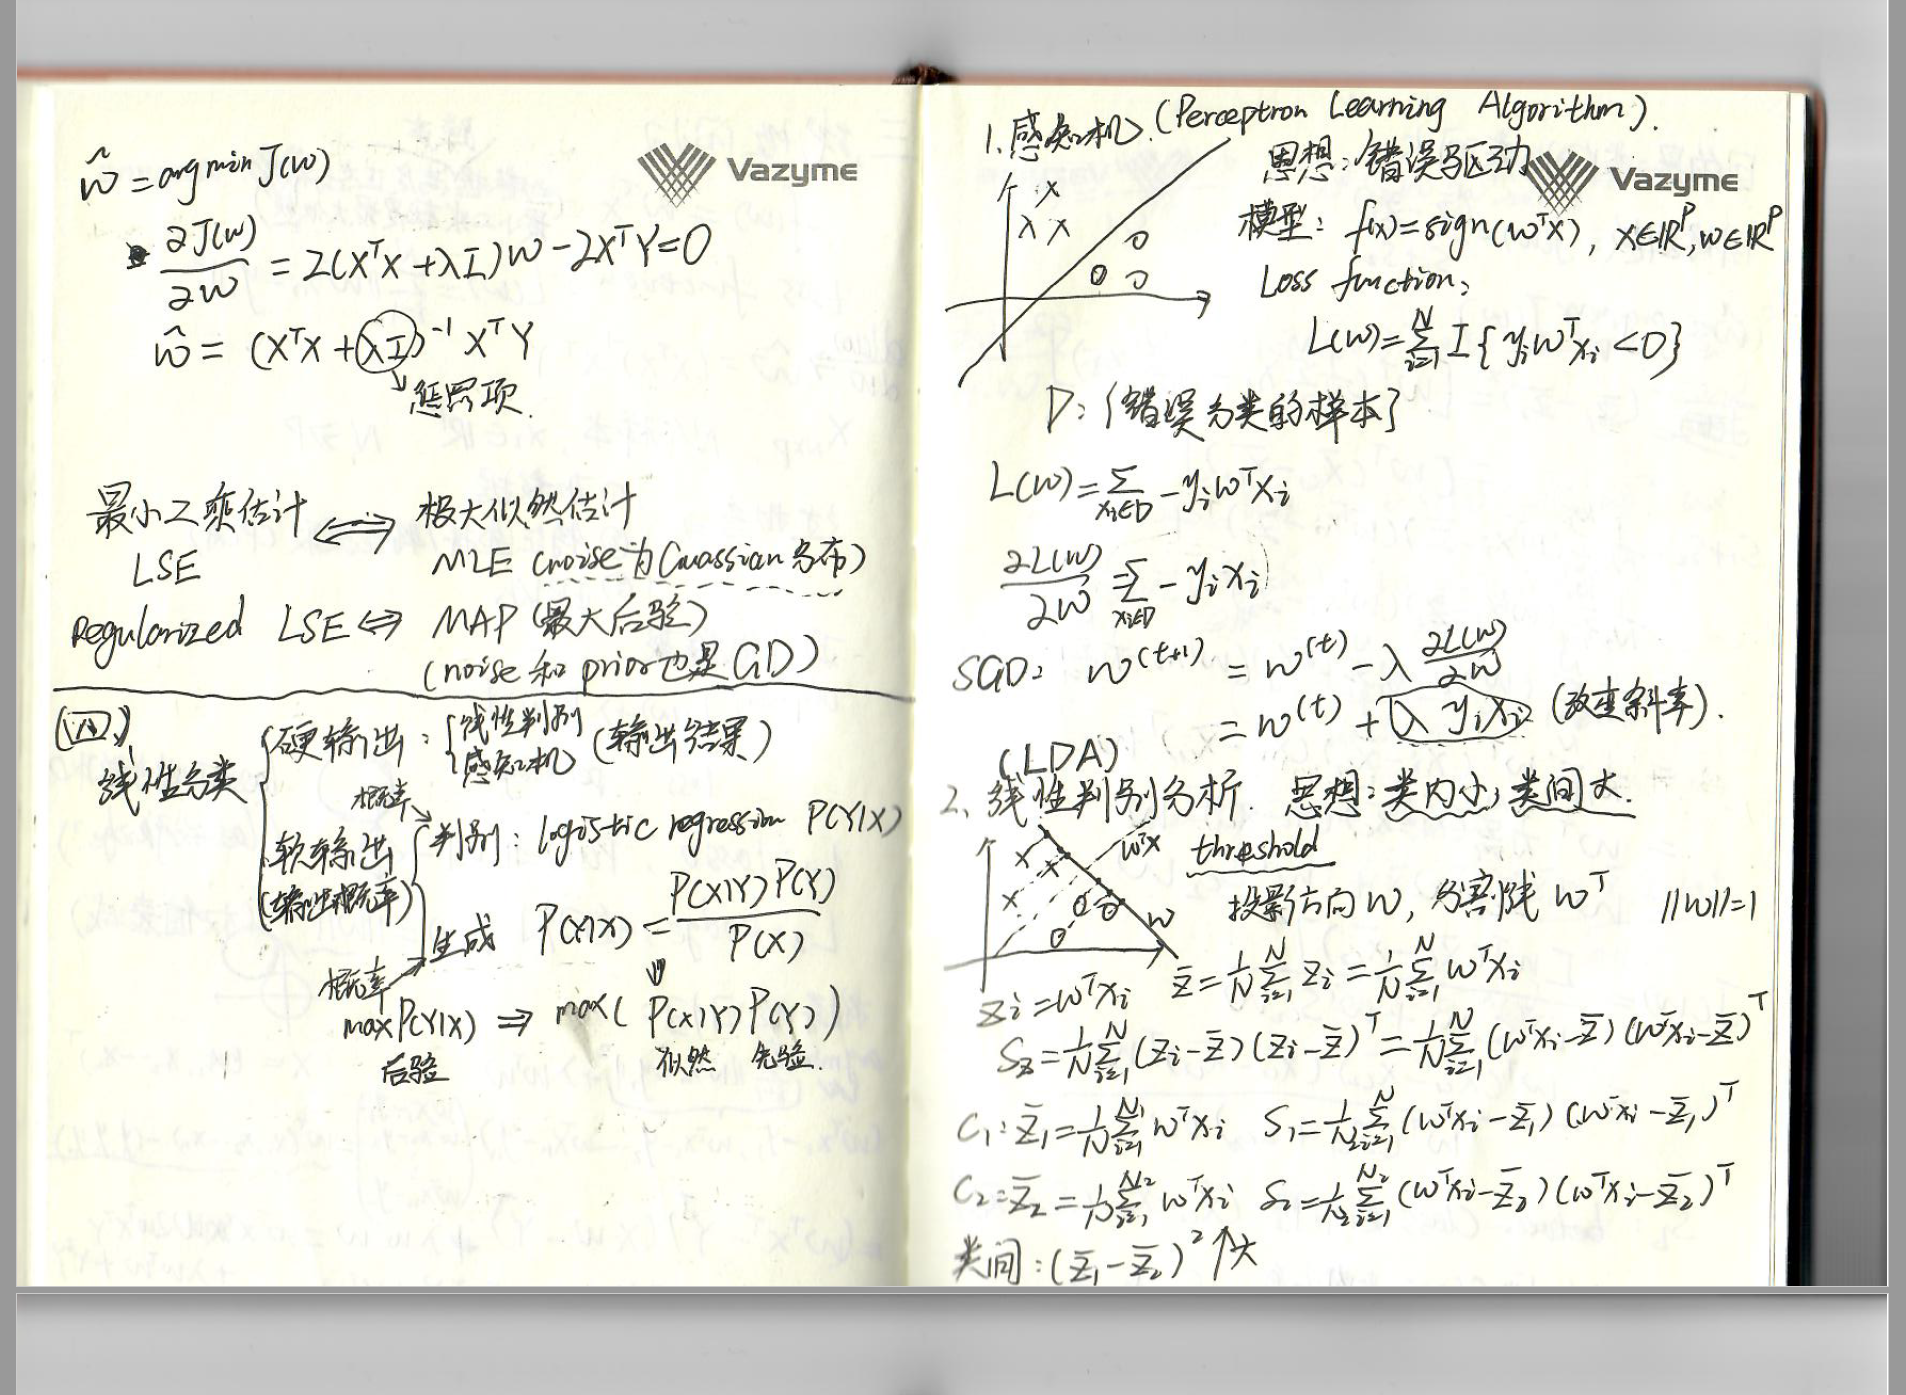 Vazyme
ŵ = arg min J(w)
∂J(w)/∂w = 2(XᵀX + λI)w - 2XᵀY = 0
ŵ = (XᵀX + λI)⁻¹ XᵀY
惩罚项.
最小二乘估计 ⟺ 极大似然估计
LSE MLE (noise为Gaussian分布)
Regularized LSE ⟺ MAP (最大后验)
(noise和prior也是GD)
(四)
线性分类
硬输出: {线性判别 感知机 (输出结果)
概率
软输出 判别: logistic regression P(Y|X)
(输出概率)
生成 P(Y|X) = P(X|Y)P(Y)/P(X)
概率 ⇓
max P(Y|X) ⇒ max( P(X|Y) P(Y) )
后验 似然 先验.
1. 感知机. (Perceptron Learning Algorithm).
思想: 错误驱动
Vazyme
模型: f(x)=sign(wᵀx), x∈ℝᵖ, w∈ℝᵖ
Loss function:
L(w)=∑ᵢ₌₁ᴺ I{yᵢwᵀxᵢ<0}
D: {错误分类的样本}
L(w)=∑_{xᵢ∈D} -yᵢwᵀxᵢ
∂L(w)/∂w = ∑_{xᵢ∈D} -yᵢxᵢ
SGD: w^(t+1) = w^(t) - λ ∂L(w)/∂w
= w^(t) + λyᵢxᵢ (改变斜率).
(LDA)
2、线性判别分析. 思想: 类内小, 类间大.
wᵀx threshold
投影方向 w, 分割线 wᵀ ||w||=1
w
zᵢ=wᵀxᵢ z̄=1/N ∑ᵢ₌₁ᴺ zᵢ = 1/N ∑ᵢ₌₁ᴺ wᵀxᵢ
S_z=1/N ∑ᵢ₌₁ᴺ (zᵢ-z̄)(zᵢ-z̄)ᵀ = 1/N ∑ᵢ₌₁ᴺ (wᵀxᵢ-z̄)(wᵀxᵢ-z̄)ᵀ
C₁: z̄₁=1/N ∑ᵢ₌₁ᴺ¹ wᵀxᵢ S₁=1/N ∑ᵢ₌₁ᴺ (wᵀxᵢ-z̄₁)(wᵀxᵢ-z̄₁)ᵀ
C₂: z̄₂=1/N ∑ᵢ₌₁ᴺ² wᵀxᵢ S₂=1/N₂ ∑ᵢ₌₁ᴺ² (wᵀxᵢ-z̄₂)(wᵀxᵢ-z̄₂)ᵀ
类间: (z̄₁-z̄₂)² ↑大